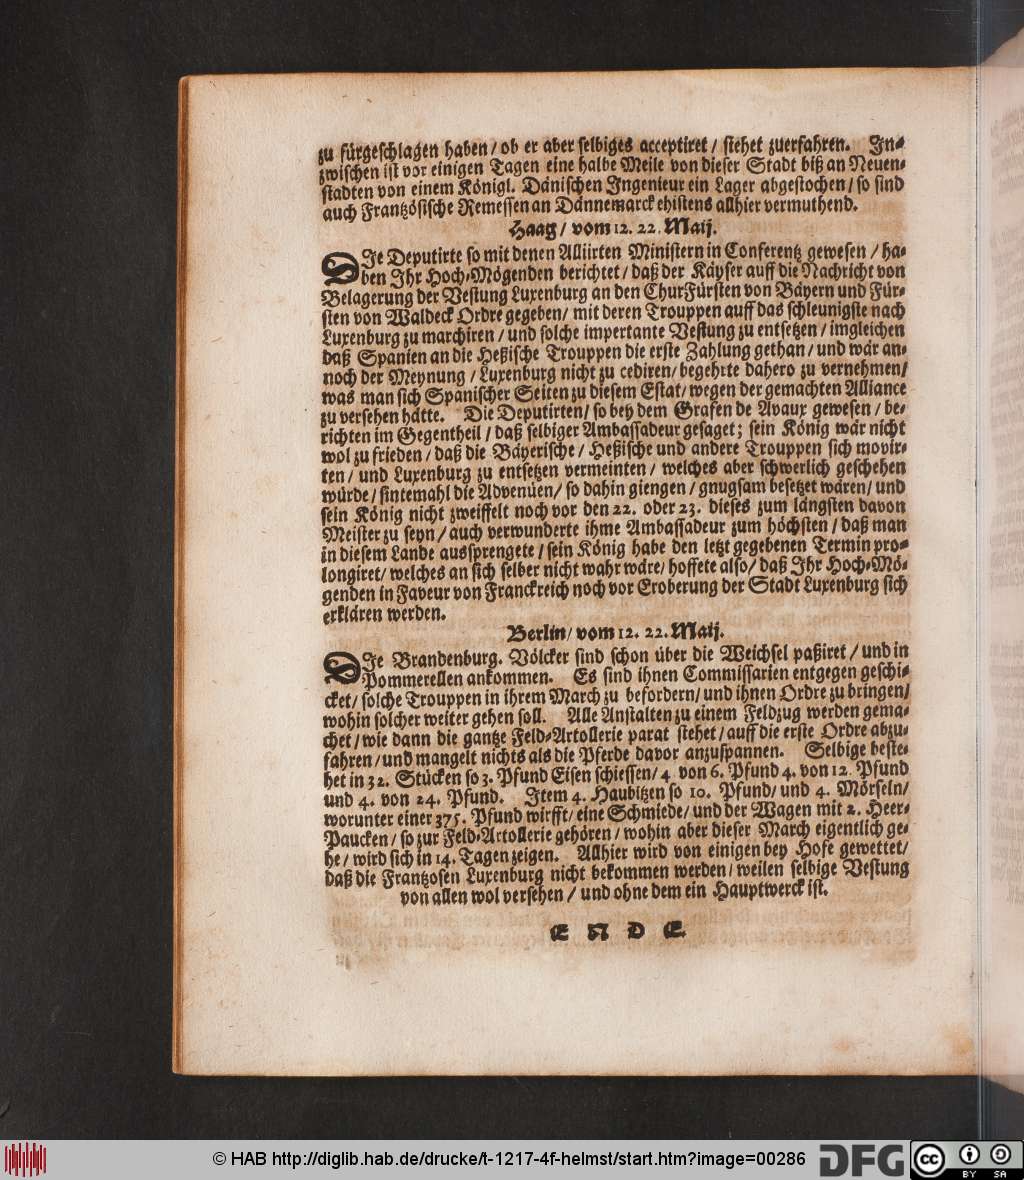 zu fürgeschlagen haben / ob er aber selbiges acceptiret / stehet zuerfahren. In-
zwischen ist vor einigen Tagen eine halbe Meile von dieser Stadt biß an Neuen-
stadten von einem Königl. Dänischen Ingenieur ein Lager abgestochen / so sind
auch Frantzösische Remessen an Dännemarck ehistens allhier vermuthend.
Haag / vom 12. 22. Maij.
DIe Deputirte so mit denen Alliirten Ministern in Conferentz gewesen / ha-
ben Ihr Hoch-Mögenden berichtet / daß der Käyser auff die Nachricht von
Belagerung der Vestung Luxenburg an den ChurFürsten von Bäyern und Für-
sten von Waldeck Ordre gegeben / mit deren Trouppen auff das schleunigste nach
Luxenburg zu marchiren / und solche impertante Vestung zu entsetzen / imgleichen
daß Spanien an die Heßische Trouppen die erste Zahlung gethan / und wär an-
noch der Meynung / Luxenburg nicht zu cediren / begehrte dahero zu vernehmen /
was man sich Spanischer Seiten zu diesem Estat / wegen der gemachten Alliance
zu versehen hätte. Die Deputirten / so bey dem Grafen de Avaux gewesen / be-
richten im Gegentheil / daß selbiger Ambassadeur gesaget; sein König wär nicht
wol zu frieden / daß die Bäyerische / Heßische und andere Trouppen sich movir-
ten / und Luxenburg zu entsetzen vermeinten / welches aber schwerlich geschehen
würde / sintemahl die Advenüen / so dahin giengen / gnugsam besetzet wären / und
sein König nicht zweiffelt noch vor den 22. oder 23. dieses zum längsten davon
Meister zu seyn / auch verwunderte ihme Ambassadeur zum höchsten / daß man
in diesem Lande aussprengete / sein König habe den letzt gegebenen Termin pro-
longiret / welches an sich selber nicht wahr wäre / hoffete also / daß Ihr Hoch-Mö-
genden in Faveur von Franckreich noch vor Eroberung der Stadt Luxenburg sich
erklären werden.
Berlin / vom 12. 22. Maij.
DIe Brandenburg. Völcker sind schon über die Weichsel paßiret / und in
Pommerellen ankommen. Es sind ihnen Commissarien entgegen geschi-
cket / solche Trouppen in ihrem March zu befordern / und ihnen Ordre zu bringen /
wohin solcher weiter gehen soll. Alle Anstalten zu einem Feldzug werden gema-
chet / wie dann die gantze Feld-Artollerie parat stehet / auff die erste Ordre abzu-
fahren / und mangelt nichts als die Pferde davor anzuspannen. Selbige beste-
het in 32. Stücken so 3. Pfund Eisen schiessen / 4 von 6. Pfund 4. von 12. Pfund
und 4. von 24. Pfund. Item 4. Haubitzen so 10. Pfund / und 4. Mörseln /
worunter einer 375. Pfund wirfft / eine Schmiede / und der Wagen mit 2. Heer-
Paucken / so zur Feld-Artollerie gehören / wohin aber dieser March eigentlich ge-
he / wird sich in 14. Tagen zeigen. Allhier wird von einigen bey Hofe gewettet /
daß die Frantzosen Luxenburg nicht bekommen werden / weilen selbige Vestung
von allen wol versehen / und ohne dem ein Hauptwerck ist.
ENDE
© HAB http://diglib.hab.de/drucke/t-1217-4f-helmst/start.htm?image=00286
DFG
cc BY SA